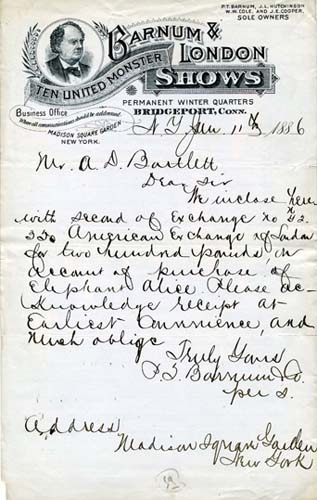 P.T. BARNUM, J.L. HUTCHINSON
W.W. COLE, AND J.E. COOPER,
SOLE OWNERS
BARNUM & LONDON
TEN UNITED MONSTER SHOWS
PERMANENT WINTER QUARTERS
BRIDGEPORT, CONN.
Business Office
Where all communications should be addressed.
MADISON SQUARE GARDEN
NEW YORK.
N.Y. Jan. 11th 1886
Mr. A. D. Bartlett
Dear Sir
We inclose here
with second of Exchange no
American Exchange of London
for two hundred pounds, on
account of purchase of
Elephant Alice. Please ac-
knowledge receipt at
Earliest Convnience, and
Much oblige
Truly Yours
P. T. Barnum & Co.
per S.
Address
Madison Square Garden
New York